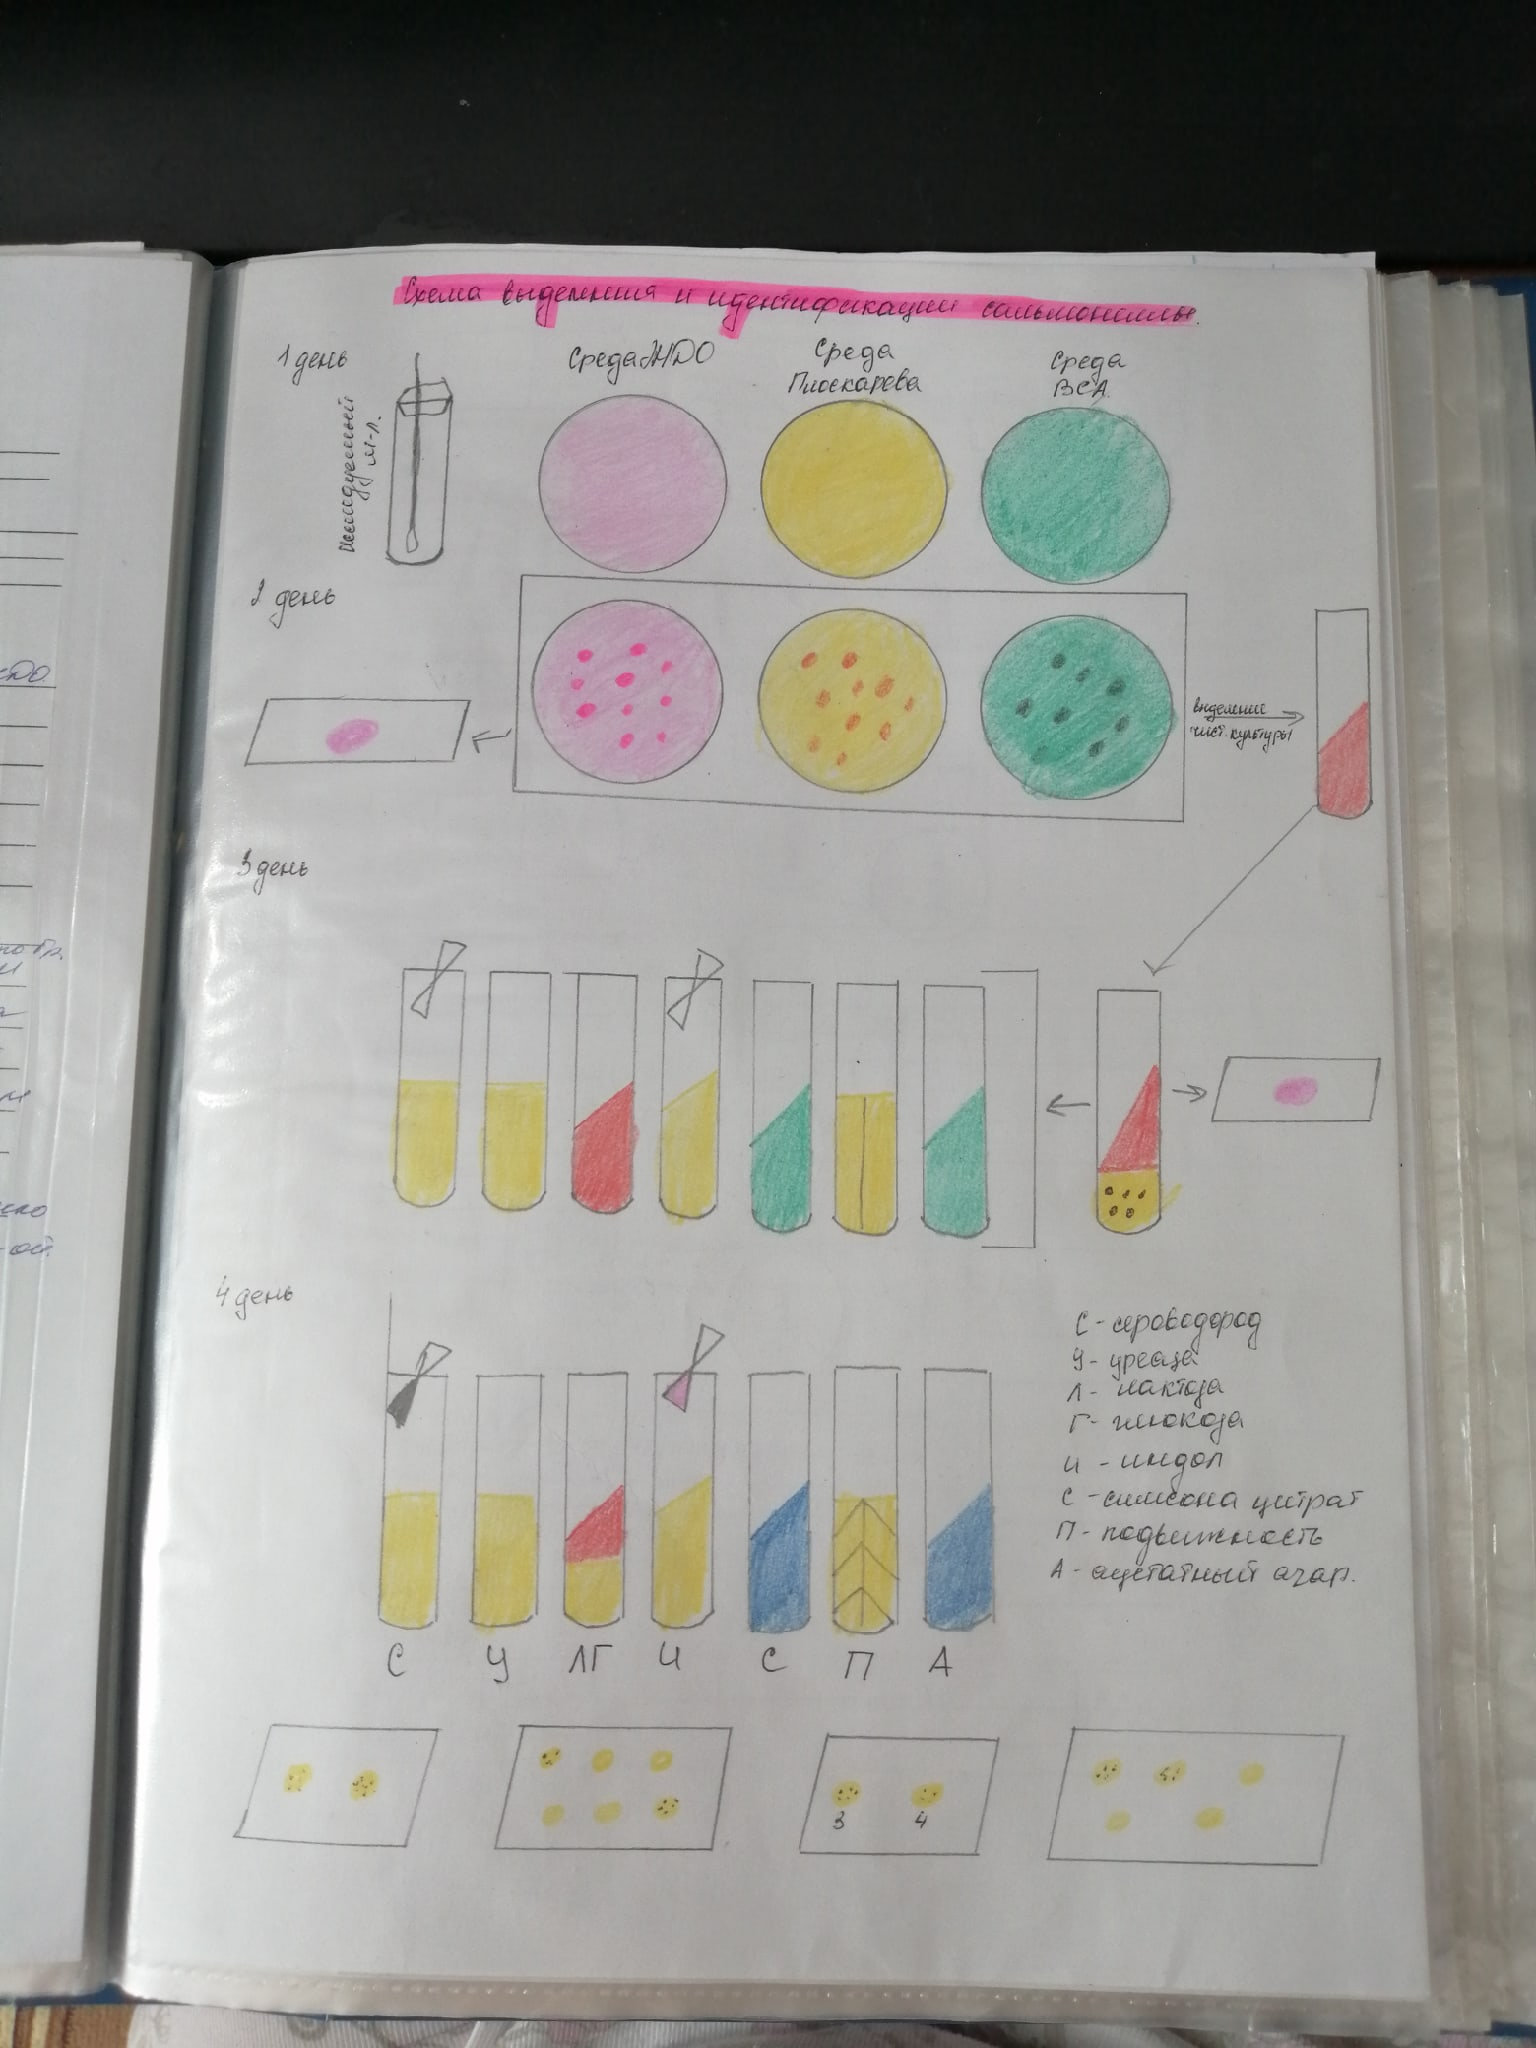 Схема выделения и идентификации сальмонеллы.
1 день
Исследуемый
м-л.
Среда ЭНДО
Среда
Плоскарева
Среда
ВСА
2 день
выделение
чист. культуры
3 день
4 день
С - сероводород
У - уреаза
Л - лактоза
Г - глюкоза
И - индол
С - симсона цитрат
П - подвижность
А - ацетатный агар.
С У ЛГ И С П А
3 4